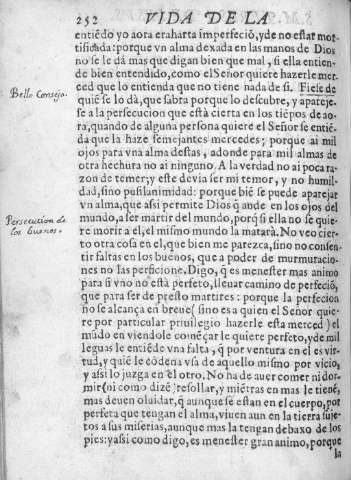 252 VIDA DE LA
entiẽdo yo aora eraharta imperfeció, y de no estar mor-
tificada: porque vn alma dexada en las manos de Dios
no se le dá mas que digan bien que mal, si ella entien-
de bien entendido, como el Señor quiere hazerle mer-
ced que lo entienda que no tiene nada de si. Fiese de
quiẽ se lo dà, que sabra porque lo descubre, y apareje-
se a la persecucion que està cierta en los tiẽpos de ao-
ra, quando de alguna persona quiere el Señor se entiẽ-
da que la haze semejantes mercedes; porque ai mil
ojos para vna alma destas, adonde para mil almas de
otra hechura no ai ninguno. A la verdad no ai poca ra-
zon de temer; y este devia ser mi temor, y no humil-
dad, sino pusilanimidad: porque biẽ se puede aparejar
vn alma, que assi permite Dios q̃ ande en los ojos del
mundo, a ser martir del mundo, porq̃ si ella no se quie-
re morir a el, el mismo mundo la matarà. No veo cier-
to otra cosa en el, que bien me parezca, sino no consen-
tir faltas en los buenos, que a poder de murmuracio-
nes no las perficione. Digo, q̃ es menester mas animo
para si vno no està perfeto, llevar camino de perfeciõ,
que para ser de presto martires: porque la perfecion
no se alcança en breve (sino es a quien el Señor quie-
re por particular privilegio hazerle esta merced) el
mũdo en viendole comẽçar le quiere perfeto, y de mil
leguas le entiẽde vna falta, q̃ por ventura en el es vir-
tud, y quiẽ le cõdena vsa de aquello mismo por vicio,
y assi lo juzga en el otro. No ha de auer comer ni dor-
mir (ni como dizẽ) resollar, y miẽtras en mas le tienẽ,
mas deuen oluidar, q̃ aunque se estan en el cuerpo, por
perfeta que tengan el alma, viuen aun en la tierra suje-
tos a sus miserias, aunque mas la tengan debaxo de los
pies: y assi como digo, es menester gran animo, porque
la
Bello Consejo.
Persecucion de
los buenos.